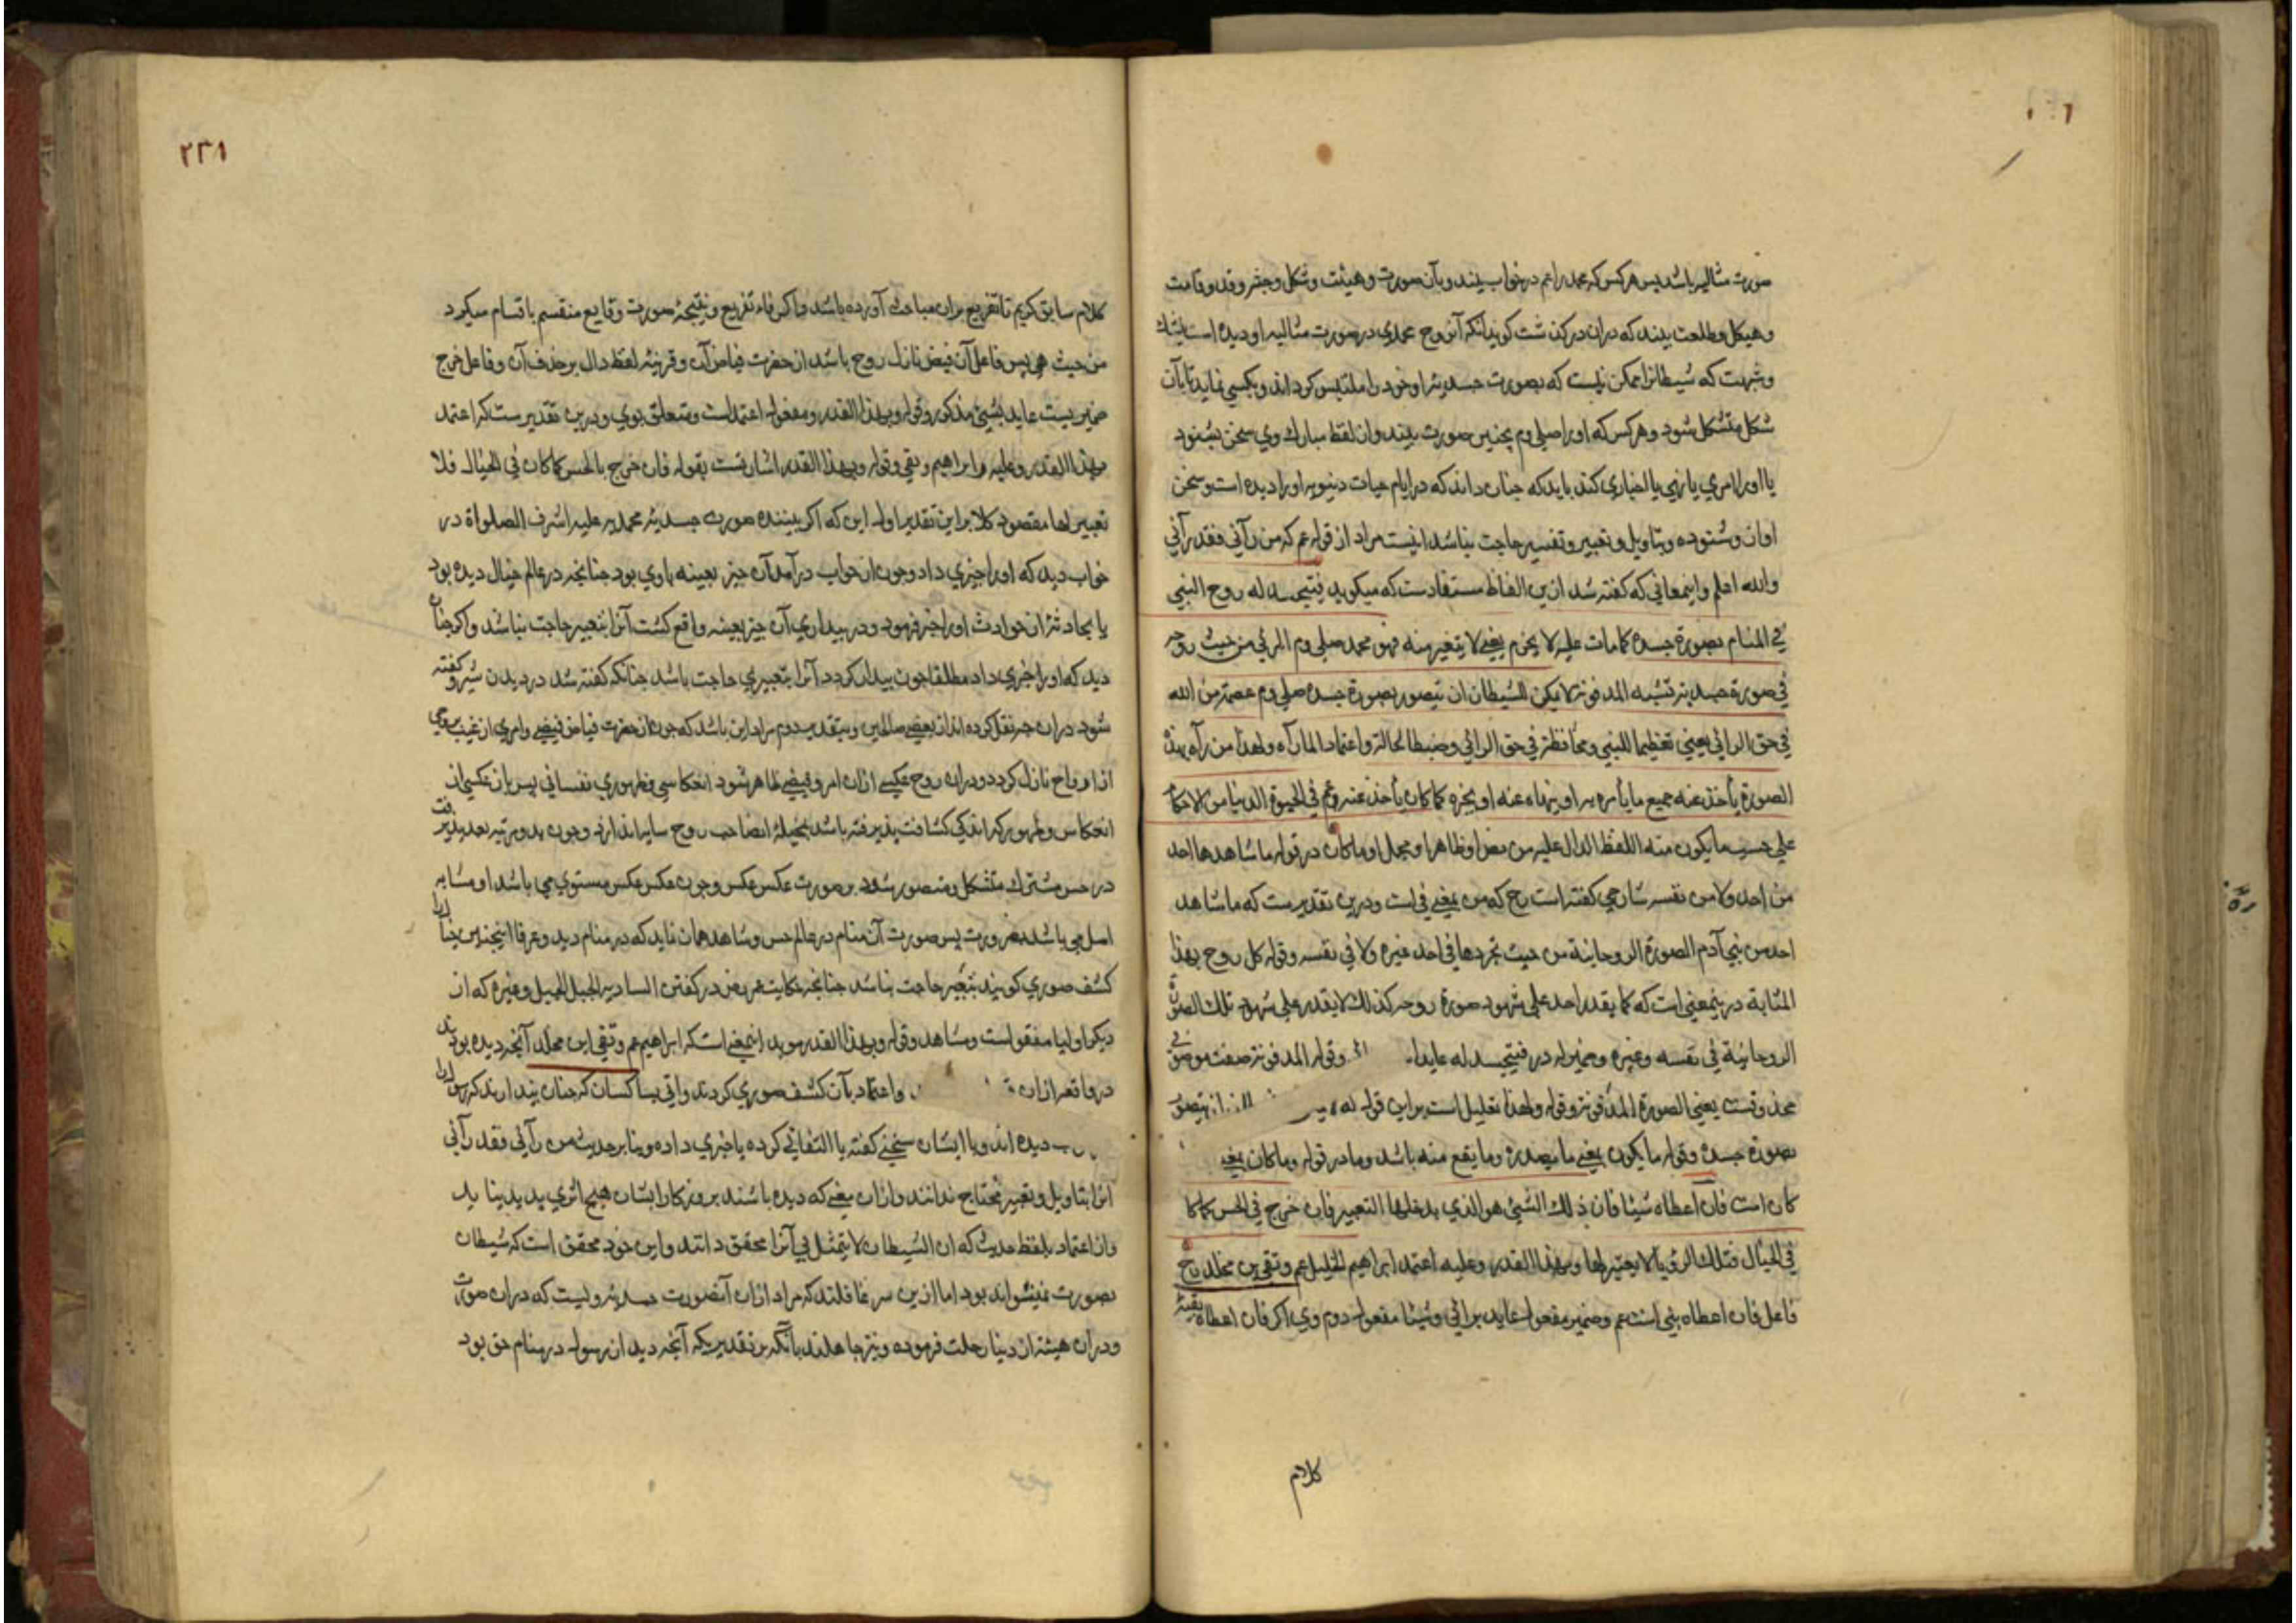 صورت مثالیه باشد پس هرکس که محمد را عم در خواب بیند و بآن صورت و هیئت و شکل و قد و قامت
و هیکل و طلعت بیند که در آن درکذشت کویند آنکه آن روح محمدی در صورت مثالیه او دیده است بیشک
و شبهت که شیطانرا ممکن نیست که بصورت جسدیه او خود را ملتبس کرداند و بکسی نماید تا بآن
شکل متشکل شود و هرکس که او را صلی وم بچنین صورت بیند و از لفظ مبارک وی سخن بشنود
یا او را امری یا نهی یا اخباری کند باید که چنان داند که در ایام حیات دنیویه او را دیده است و سخن
او ازو شنوده و بتاویل و تعبیر و تفسیر حاجت نباشد اینست مراد از قوله عم که من رآنی فقد رآنی
والله اعلم و اینمعانی که کفته شد ازین الفاظ مستفادست که میکوید فیتجسد له روح النبی
فی المنام بصورة جسده کما مات علیه لا یخرم یعنی لا یتغیر منه فهو محمد صلی وم المرئی من حیث روحه
فی صورة جسدیة تشبه المدفونة لا یمکن للشیطان ان یتصور بصورة جسده صلی وم عصمة من الله
فی حق الرائی یعنی تعظیما للنبی و محافظة فی حق الرائی و ضبطا لحالته و اعتمادا لما رآه ولهذا من رآه بهذه
الصورة یأخذ عنه جمیع ما یأمره به او ینهاه عنه او یخبره کما کان یأخذ عنه عم فی الحیوة الدنیا من الاحکام
علی حسب ما یکون منه اللفظ الدال علیه من نص او ظاهر او مجمل او ما کان در قوله ما شاهدها احد
من احد ولا من نفسه شارحی کفته است رح که من بمعنی فی است و درین تقدیرست که ما شاهد
احد من بنی آدم الصورة الروحانیة من حیث تجردها فی احد غیره ولا فی نفسه و قوله کل روح بهذا
المثابة درینمعنی است که کما یقدر احد علی شهود صورة روحه کذلک لا یقدر علی شهود تلک الصورة
الروحانیة فی نفسه و غیره و ضمیر له در فیتجسد له عایداء و قوله المدفونة صفت موصوفی
محذوفست یعنی الصورة المدفونة و قوله ولهذا تعلیل است براین قوله لا
بصورة جسده و قوله ما یکون بمعنی ما یصدر و ما یقع منه باشد و ما در قوله و ما کان بمعنی
کان است فان اعطاه شیئا فان ذلک الشیئ هو الذی یدخلها التعبیر فان خرج فی الحس کما کان
فی الخیال فتلک الرؤیا لا تعبیر لها وبهذا القدر و علیه اعتمد ابراهیم الخلیل عم و تقی بن مخلد رح
فاعل فان اعطاه نبی است عم و ضمیر مفعول عاید برائی و شیئا مفعول دوم وی اکر فان اعطاه بقیه
کلام
٢٣٨
کلام سابق کریم تا تفریع بران مباحث آورده باشد و اکر فاء تفریع و نتیجه صورت وقایع منقسم باقسام میکرد
من حیث هی پس فاعل آن فیض نازل روح باشد از حضرت فیاض آن و قرینه لفظ دال بر حذف آن و فاعل خرج
ضمیریست عاید بشیئ مذکور و قوله وبهذا القدر و مفعول اعتمد است و متعلق بوی و درین تقدیرست که اعتمد
بهذا القدر و علیه ابراهیم و تقی و قوله وبهذا القدر اشارتست بقوله فان خرج بالحس کما کان فی الخیال فلا
تعبیر لها مقصود کلا براین تقدیر اول این که اکر بیننده صورت جسدیه محمدیه علیه اشرف الصلواة در
خواب دید که او را چیزی داد و چون از خواب درآمد آن چیز بعینه باوی بود چنانچه در عالم خیال دیده بود
یا بحادثه از حوادث او را خبر فرمود و در بیداری آن چیز بعینه واقع کشت آنرا بتعبیر حاجت نباشد و اکر چنان
دید که او را چیزی داد مطلقا چون بیدار کردد آنرا بتعبیری حاجت باشد چنانکه کفته شد در دیدن شیر و کفته
شود دران چه نقل کرده اند از بعضی صالحین و بتقدیر دوم مراد این باشد که چون از حضرت فیاض فیضی و امری از غیب بروحی
از ارواح نازل کردد و دران روح عکسی ازان امر و فیضی ظاهر شود انعکاسی و ظهوری نفسانی پس بازعکسی از
انعکاس و ظهور که اندکی کثافت پذیرفته باشد بخیله انصاحب روح سایه اندازد و چون بدو مرتبه بعد پذیرفت
در حس مشترک متشکل و متصور شود بر صورت عکس عکس و چون عکس عکس مستوی می باشد او مشابه
اصل می باشد بضرورت پس صورت آن منام در عالم حس و مشاهد همان نماید که در منام دید و عرفا اینچنین چنانرا
کشف صوری کویند بتعبیر حاجت نباشد چنانچه حکایت عمر رض در کفتن الساریه الجبل الجبل و غیره که از
دیکر اولیا منقولست و مشاهد و قوله وبهذا القدر موید اینمعنی است که ابراهیم عم و تقی ابن مخلد آنچه دیده بودند
در واقعه ازان و اعتماد بآن کشف صوری کردند و اتی بسا کسان که چنان پندارند که رسولرا
دیده اند و با ایشان سخنی کفته یا التفاتی کرده یا خبری داده و بنا بر حدیث من رآنی فقد رآنی
آنرا بتاویل و تعبیر محتاج ندانند و ازان معنی که دیده باشند بروزکار ایشان هیچ اثری پدید نیاید
و از اعتماد بلفظ حدیث که ان الشیطان لا یتمثل بی آنرا محقق دانند و این خود محقق است که شیطان
بصورت نمیتواند بود اما ازین سر غافلند که مراد ازان آنصورت جسدیه ویست که دران صورت
و دران هیئت از دنیا رحلت فرموده و نیز جاهلند بآنکه بر تقدیر یکه آنچه دید از رسول در منام حق بود